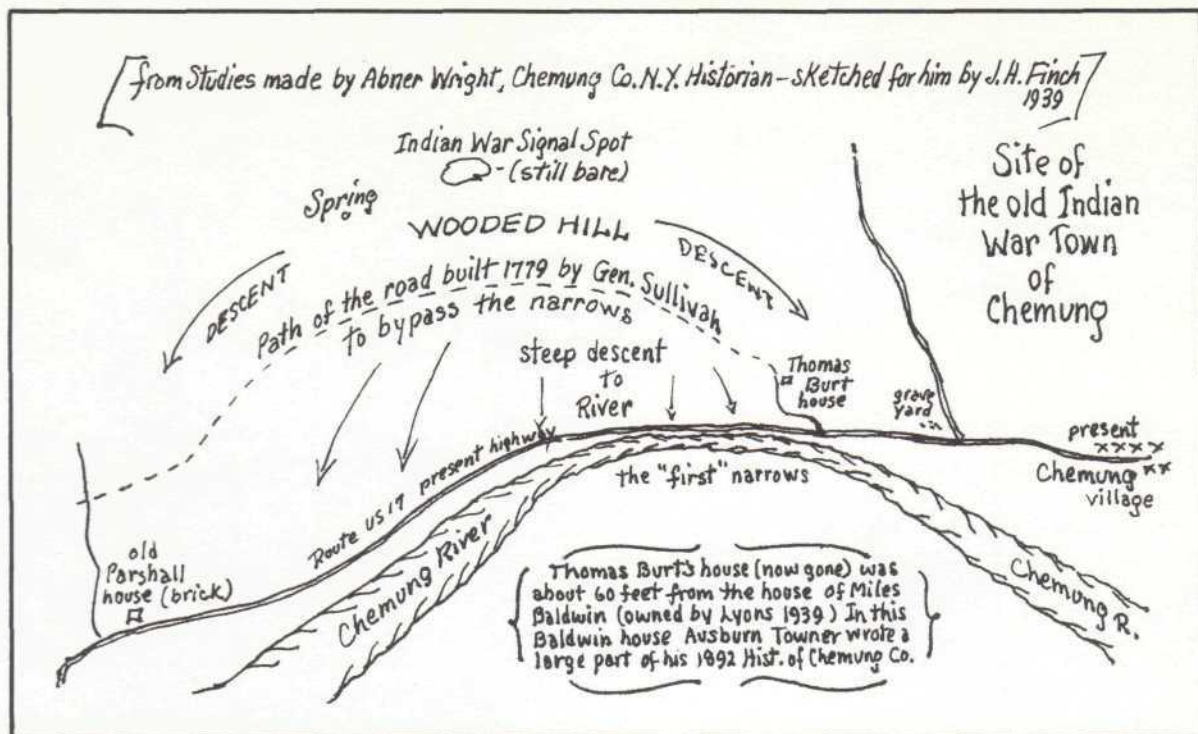 from Studies made by Abner Wright, Chemung Co. N.Y. Historian – sketched for him by J.H. Finch
1939
Site of
the old Indian
War Town
of
Chemung
Indian War Signal Spot
- (still bare)
Spring
WOODED HILL
DESCENT
DESCENT
Path of the road built 1779 by Gen. Sullivan
to bypass the narrows
steep descent
to
River
Thomas
Burt
house
grave
yard
present
xxxx
Chemung xx
village
Route US 17 present highway
the "first" narrows
old
Parshall
house (brick)
Chemung River
Chemung R.
Thomas Burt's house (now gone) was
about 60 feet from the house of Miles
Baldwin (owned by Lyons 1939) In this
Baldwin house Ausburn Towner wrote a
large part of his 1892 Hist. of Chemung Co.